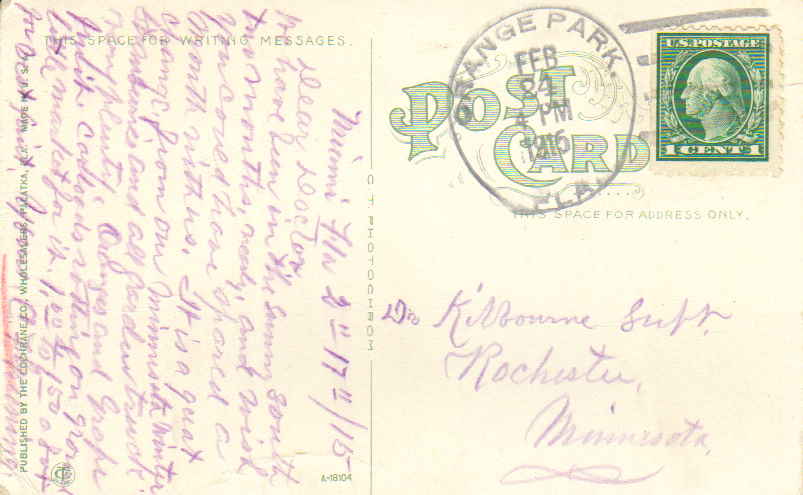 THIS SPACE FOR WRITING MESSAGES.
Miami Fla 2-17-/15
Dear Doctor
have been in the sunny south
two months nearly and wish
you could have spared a
month with us. It is a great
change from our Minnesota winter
Sunshine and all garden truck
in plenty. Oranges and Grape
fruit
market for it. 1.00 to 1.50
PUBLISHED BY THE COCHRANE CO., WHOLESALERS, PALATKA, FLA. MADE IN U. S. A.
A-18104
POST CARD
THIS SPACE FOR ADDRESS ONLY.
ORANGE PARK.
FEB
24
4 PM
1915
FLA.
U.S. POSTAGE
1 CENT 1
Dr Kilbourne Supt.
Rochester,
Minnesota,